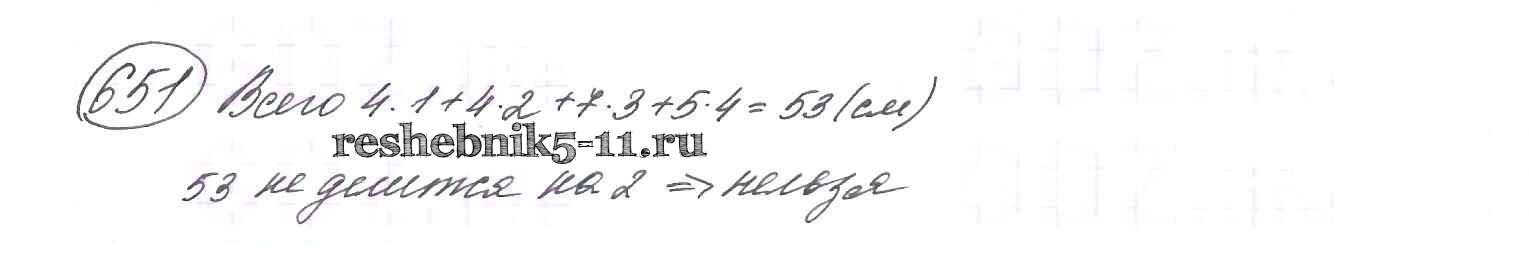 651 Всего 4·1+4·2+7·3+5·4=53(см)
reshebnik5-11.ru
53 не делится на 2 => нельзя